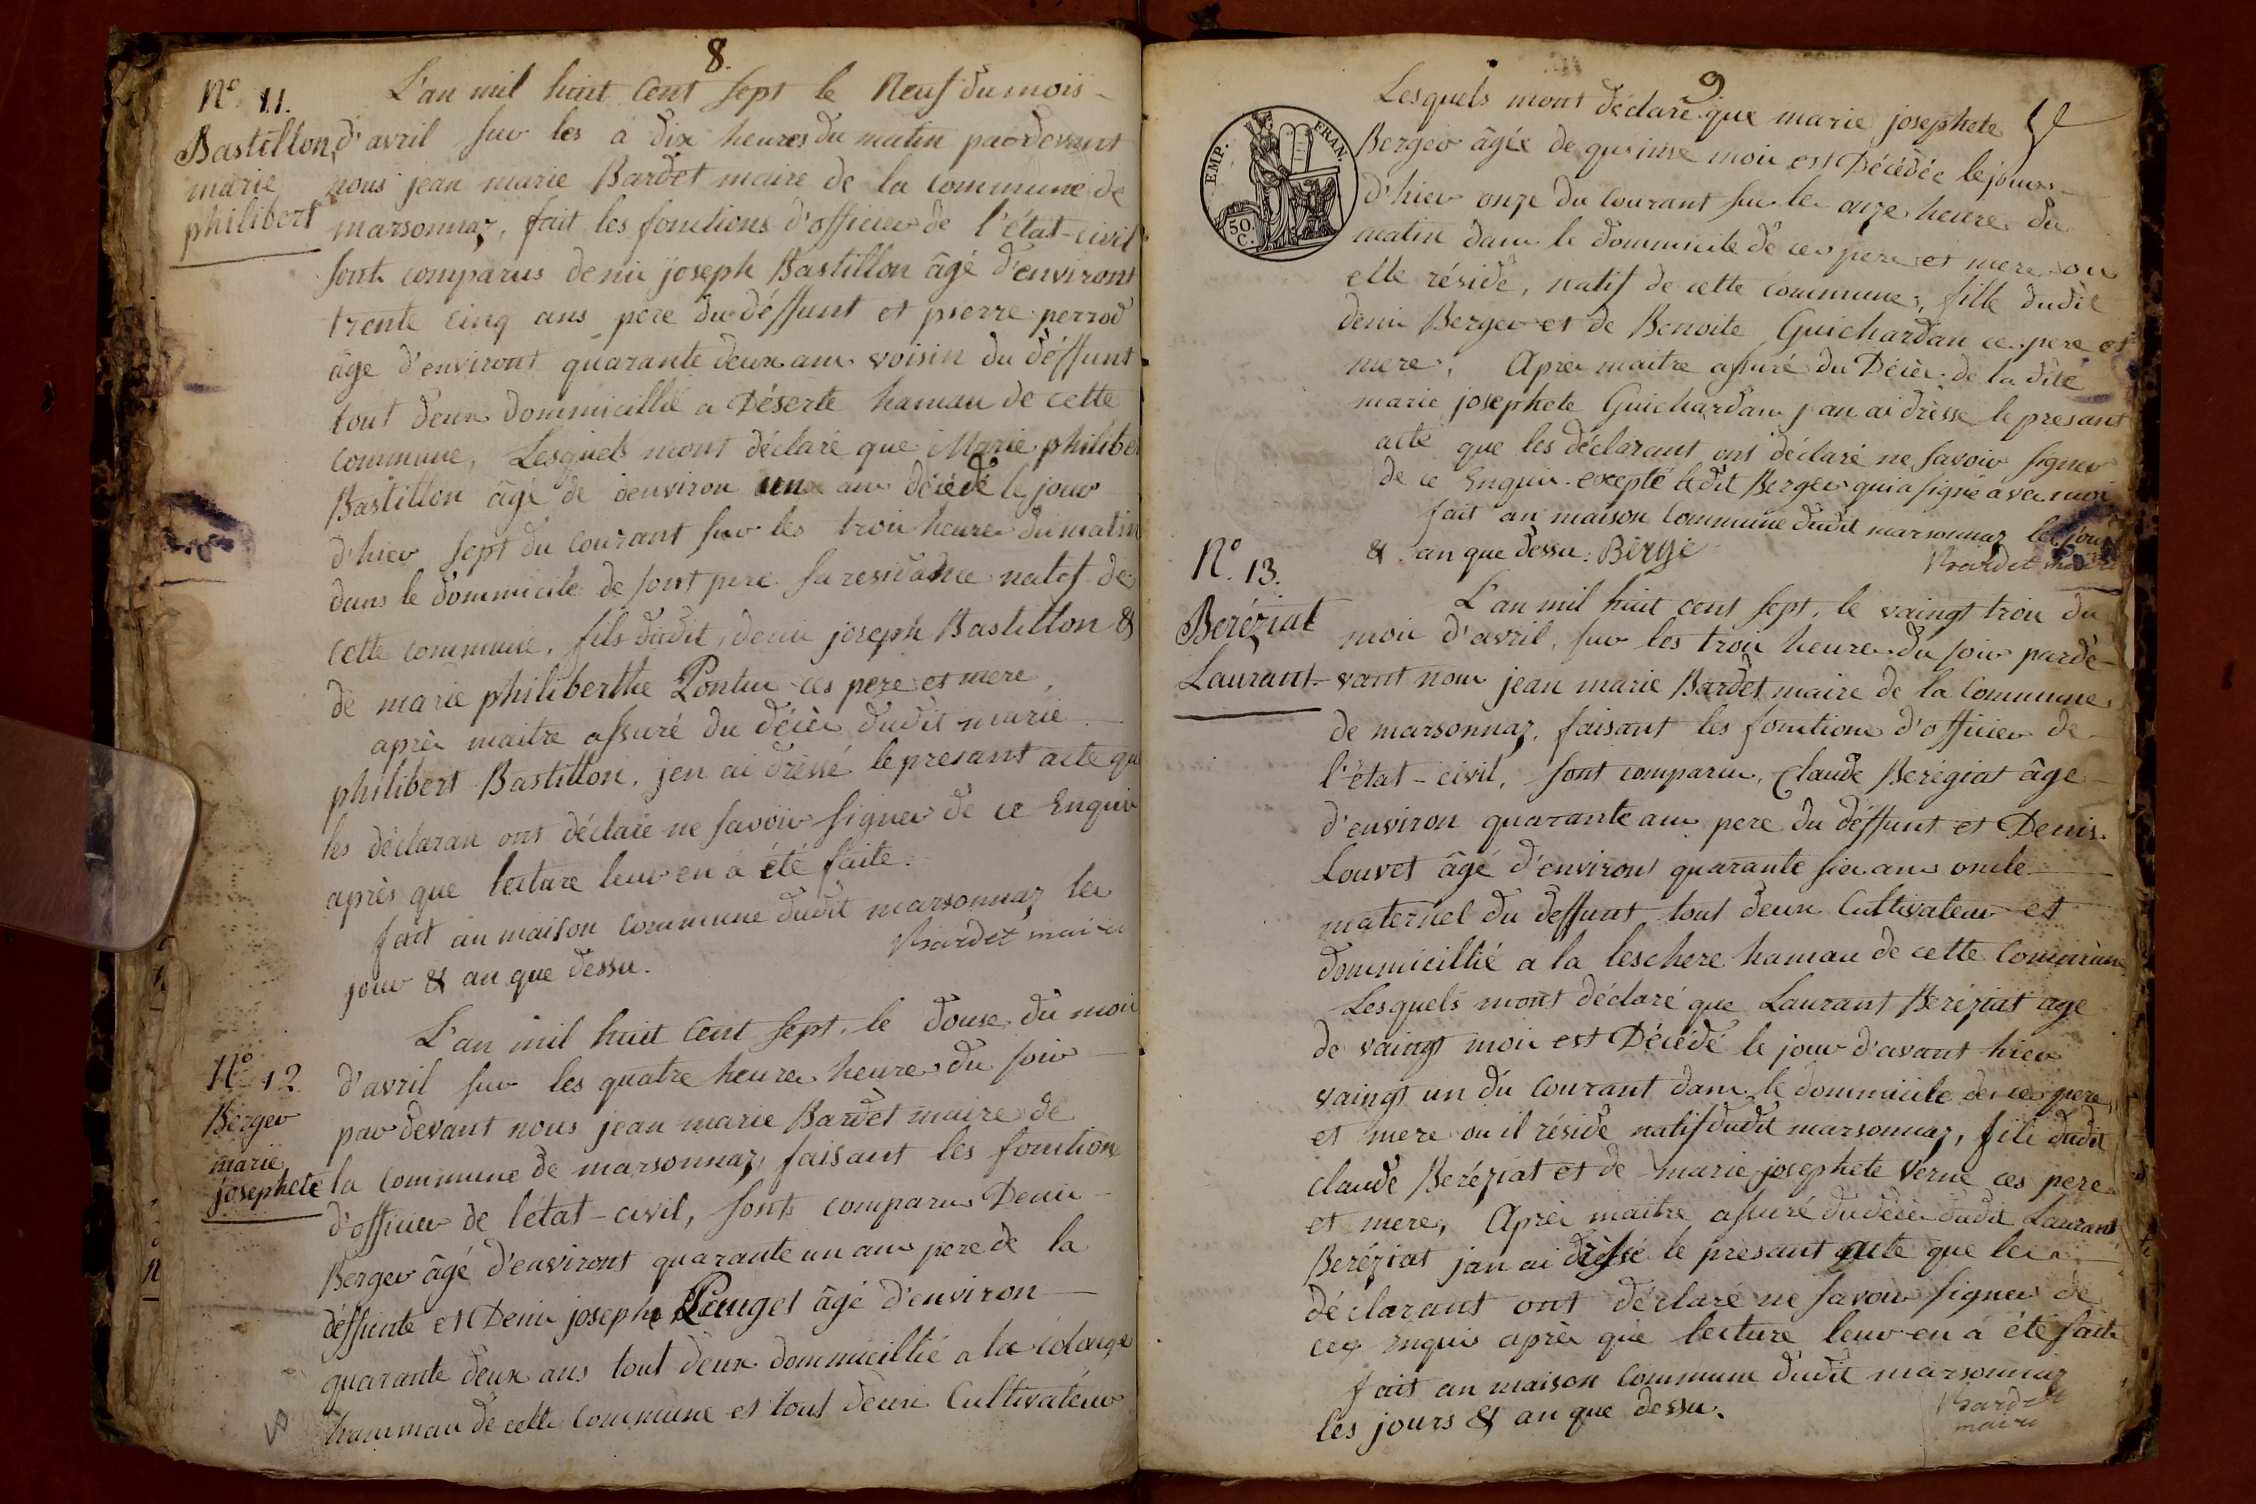 8.
N° 11.
Bastillon
marie
philibert
L'an mil huit Cent sept le Neuf du mois
d'avril sur les à dix heures du matin pardevant
nous jean marie Bardet maire de la commune de
marsonnaz, fait les fonctions d'officier de l'état-civil
sont comparus denis joseph Bastillon âgé d'environt
trente cinq ans pere du déffunt et pierre perrod
âge d'environt quarante deux ans voisin du déffunt
tout deux dommicillié a Déserte hamau de cette
commune, Lesquels mont déclaré que Marie philiber
Bastillon âgé de denviron un an décédé le jour
d'hier sept du courant sur les trois heures du matin
dans le dommicile de sont pere sa residance natif de
cette commune, fils dudit denis joseph Bastillon &
de marie philiberthe Pontus ces pere et mere
après maitre assuré du décès dudit marie
philibert Bastillon, jen ai dressé le present acte que
les déclaran ont déclaré ne savoir signer de ce Enquis
après que lecture leur en a été faite.
fait an maison commune dudit marsonnaz les
jour & an que dessus.
Bardet maire
N° 12
Berger
marie
josephete
L'an mil huit Cent sept, le douse du mois
d'avril sur les quatre heures heures du soir
par devant nous jean marie Bardet maire de
la commune de marsonnaz, faisant les fonction
d'officier de l'état-civil, sont comparus Denis
Berger âgé d'environt quarante un ans pere de la
déffunte et Denis joseph Pauget âgé d'environ
quarante deux ans tout deux dommicillié a la
hammau de cette commune et tout deux Cultivateur
9
Lesquels mont déclaré que marie josephete
Berger âgée de quinse mois est Décédée le jours
d'hier onze du courant sur les onze heures du
matin dans le dommicile de ces pere et mere ou
elle réside, natif de cette commune, fille dudit
denis Berger et de Benoite Guichardan ces pere et
mere, Après maitre assuré du Décès de la dite
marie josephete Guichardan j'an ai dresse le presant
acte que les déclarant ont déclaré ne savoir signer
de ce Enquis excepté ledit Berger qui a signé avec moi
fait an maison commune dudit marsonnaz les jour
& an que dessus. Bergé
Bardet maire
EMP. FRAN.
50 C.
N° 13.
Beréziat
Laurant
L'an mil huit cent sept, le vaingt trois du
mois d'avril, sur les trois heures du soir pardé-
vant nous jean marie Bardet maire de la commune
de marsonnaz, faisant les fonctions d'officier de
l'état-civil, sont comparus, Claude Berégiat âge
d'environ quarante ans pere du déffunt et Denis
Louvet âgé d'environt quarante six ans oncle
maternel du deffunt tout deux Cultivateur et
dommicillié a la leschere hamau de cette commune
Lesquels mont déclaré que Laurant Beréziat age
de vaingt mois est Décédé le jour d'avant hier
vaingt un du courant dans le dommicile de ces pere
et mere ou il réside natif dudit marsonnaz, fils dudit
claude Beréziat et de marie josephete verne ces pere
et mere, Après maitre assuré du décès dudit Laurant
Beréziat jan ai dressé le presant acte que les
déclarant ont déclaré ne savoir signer de
ces enquis après que lecture leur en a été faite
fait an maison commune dudit marsonnaz
les jours & an que dessus.
Bardet
maire